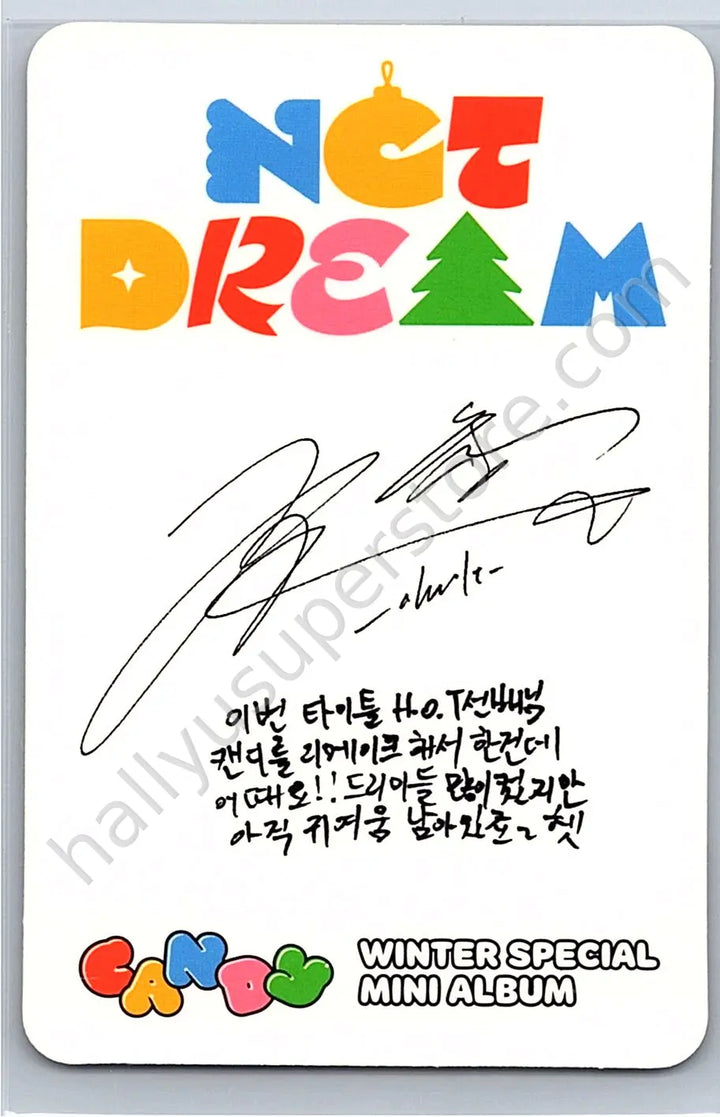 NCT
DREAM
이번 타이틀 H.O.T선배님
캔디를 리메이크 해서 한건데
어때요!! 많이컸지만
아직 귀여움 남아있죠 헷
CANDY
WINTER SPECIAL
MINI ALBUM
hallyusuperstore.com